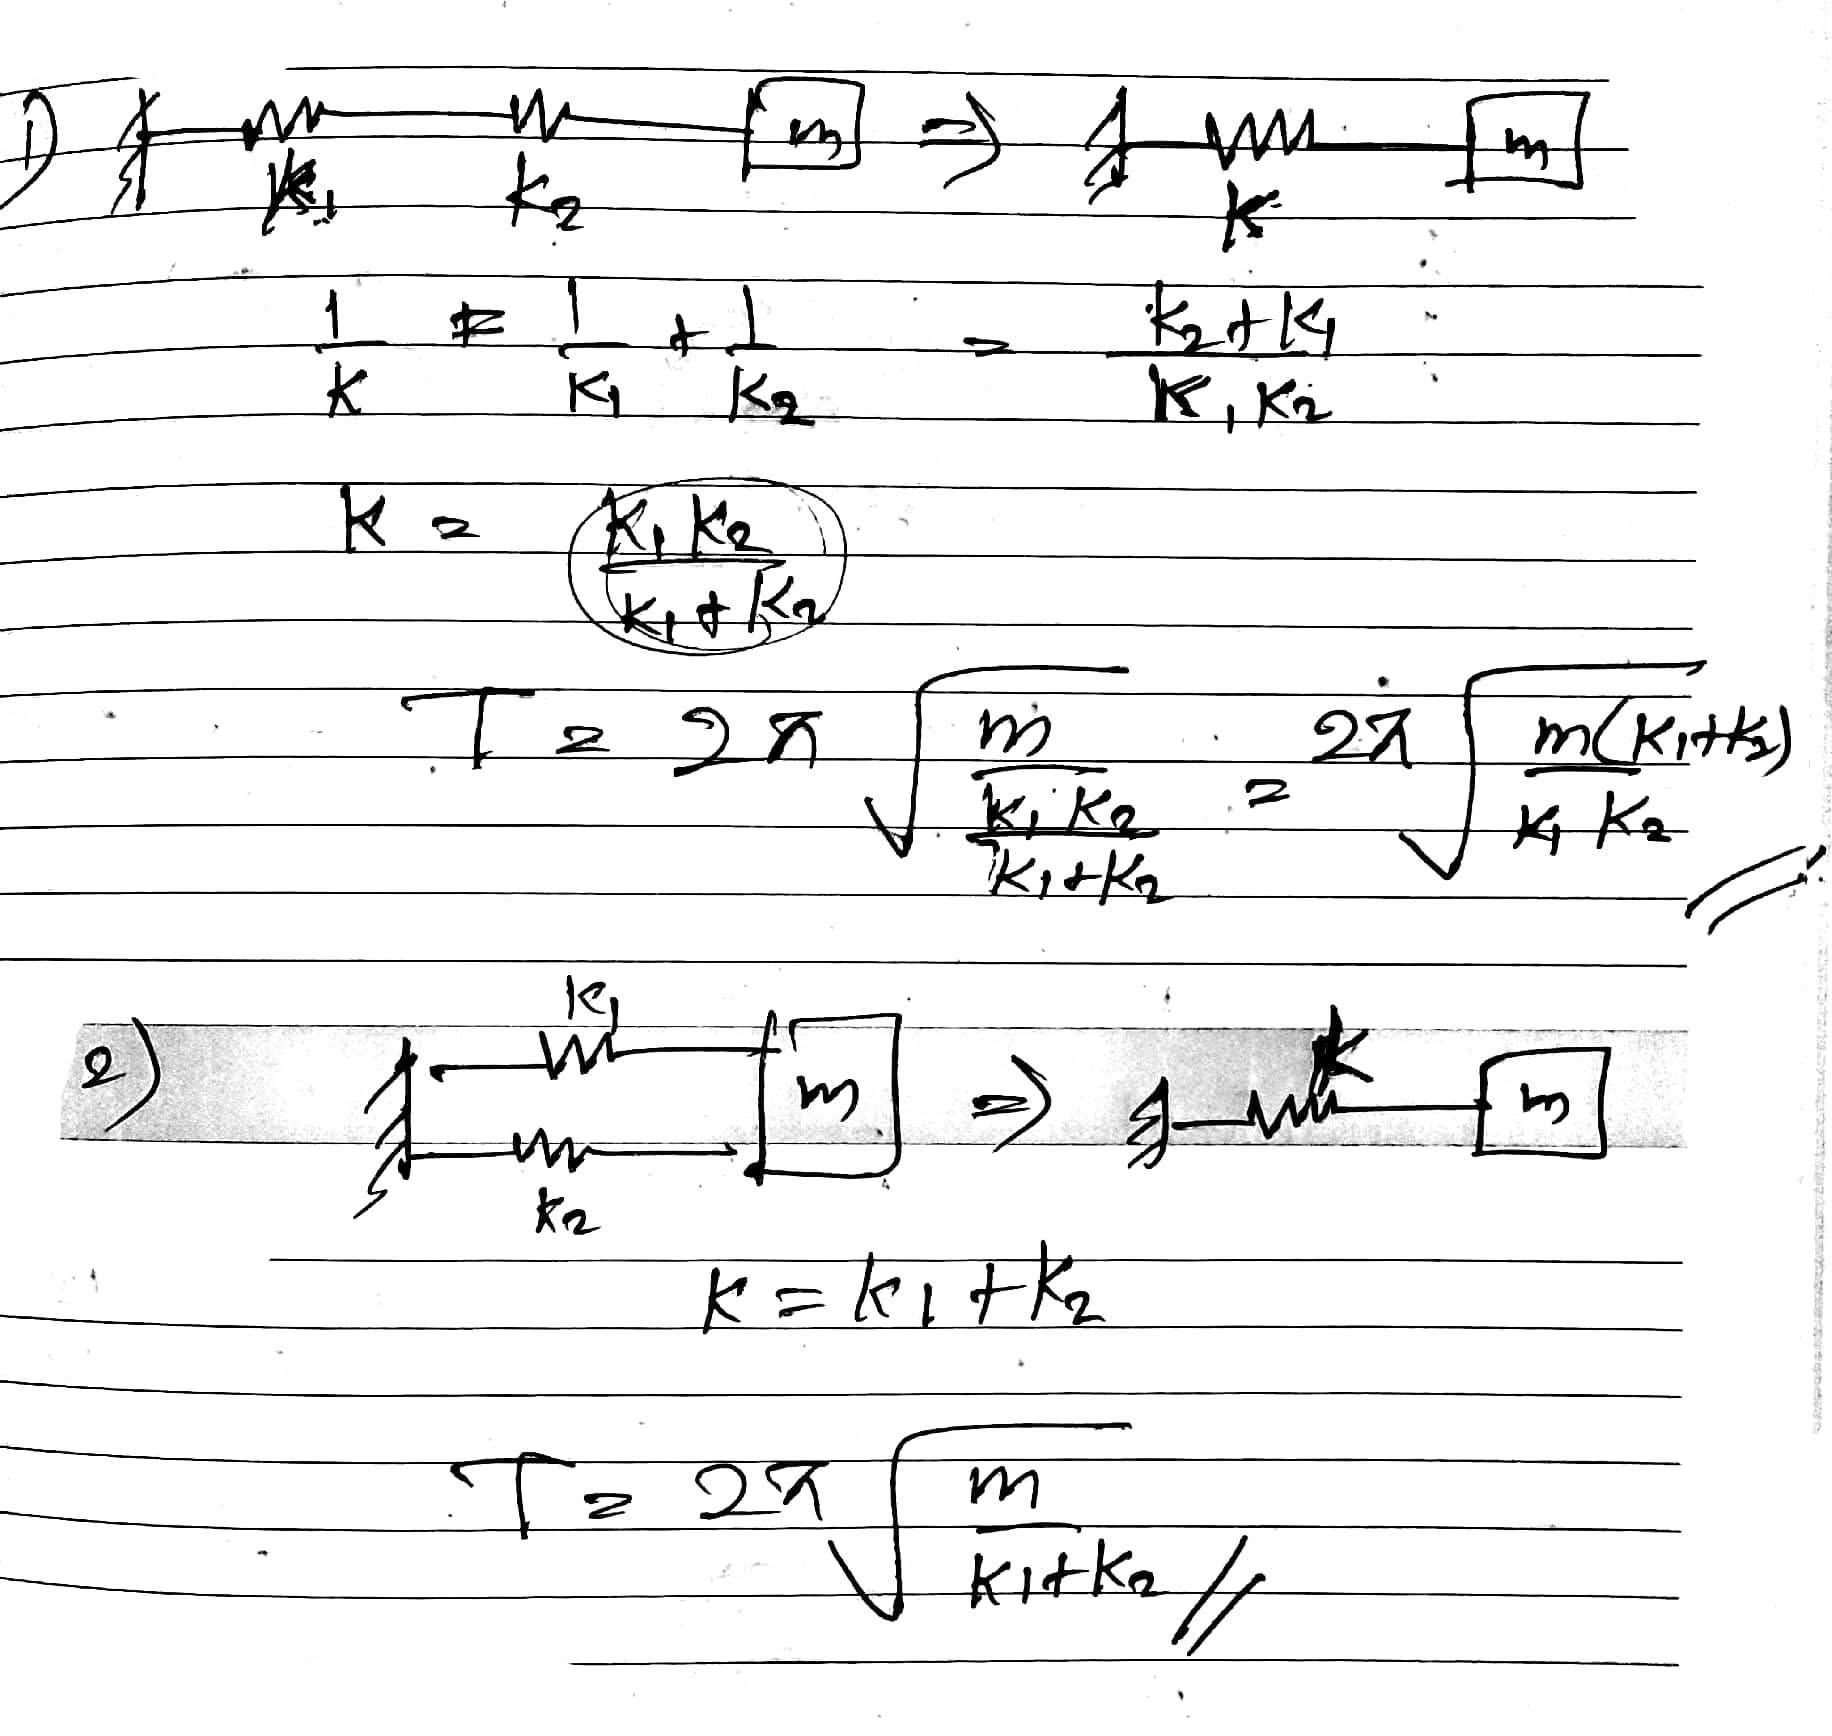 1) K₁ K₂ m ⇒ K m
1/K = 1/K₁ + 1/K₂ = (K₂ + K₁)/(K₁ K₂)
K = (K₁ K₂)/(K₁ + K₂)
T = 2π √(m/((K₁ K₂)/(K₁+K₂))) = 2π √(m(K₁+K₂)/(K₁ K₂))
2) K₁ K₂ m ⇒ K m
K = K₁ + K₂
T = 2π √(m/(K₁+K₂))